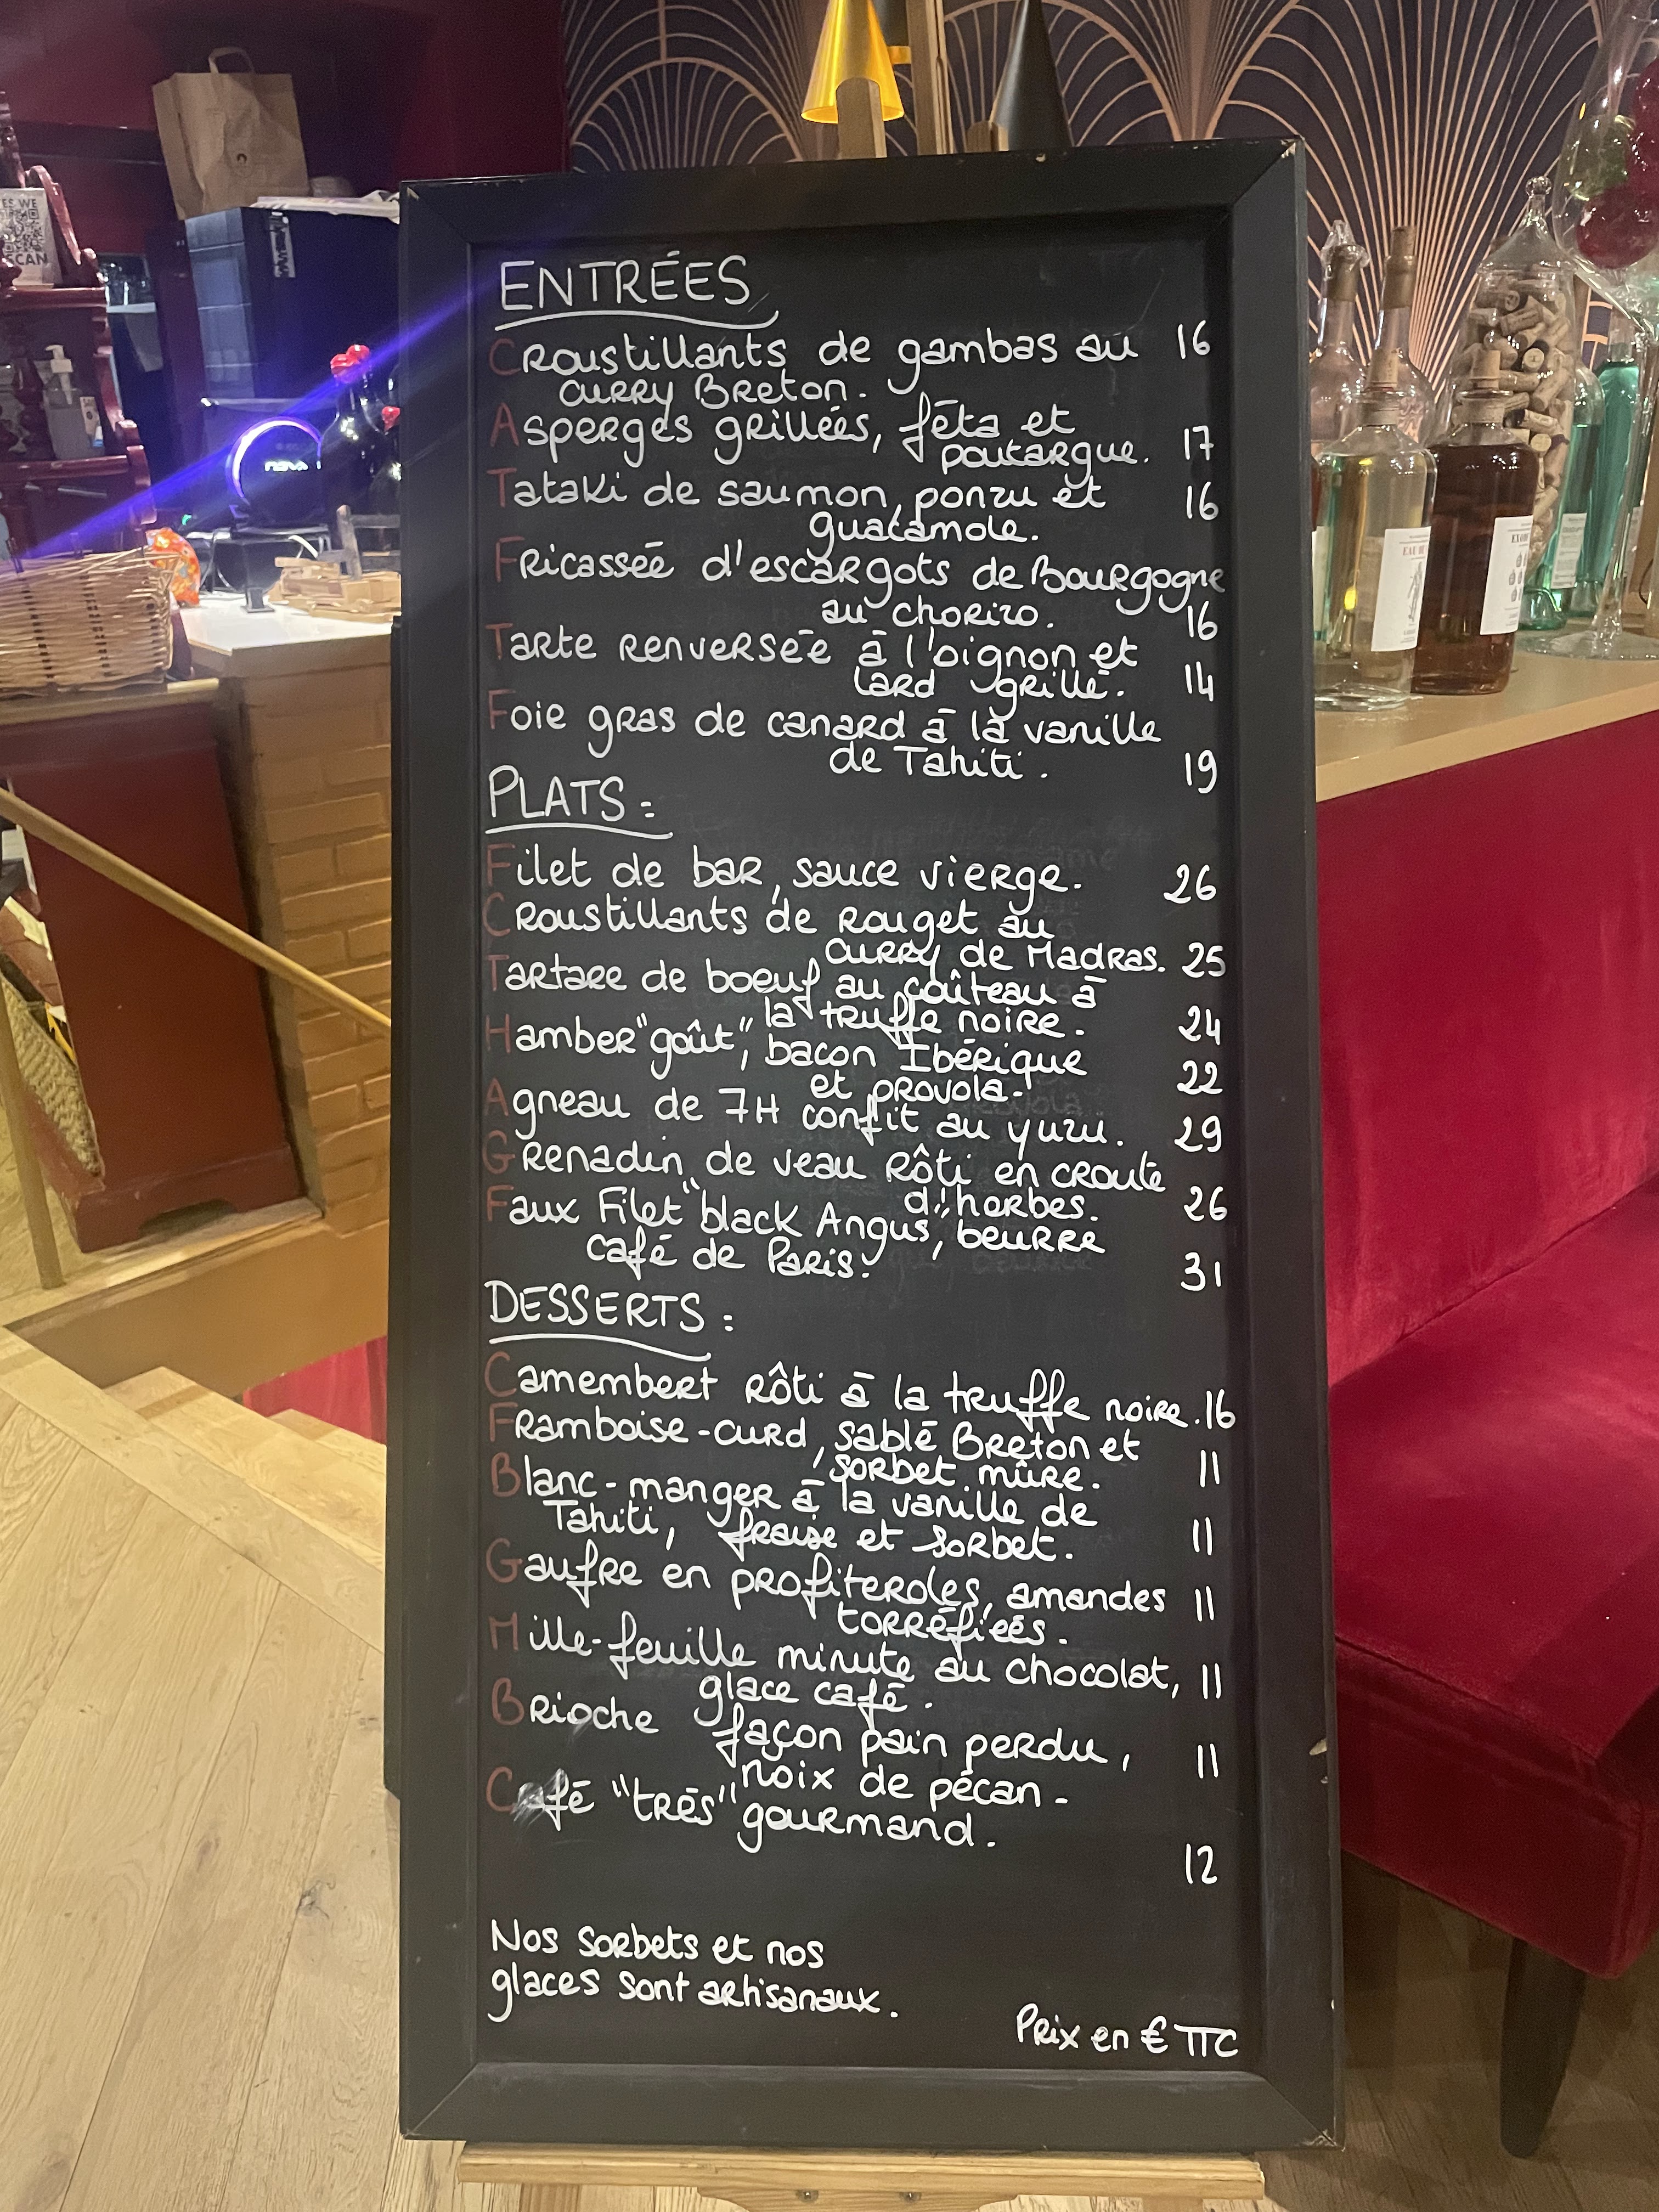 ENTRÉES
Croustillants de gambas au 16
curry Breton.
Asperges grillées, féta et
poutargue. 17
Tataki de saumon, ponzu et 16
guacamole.
Fricassée d'escargots de Bourgogne
au chorizo. 16
Tarte renversée à l'oignon et
lard grillé. 14
Foie gras de canard à la vanille
de Tahiti. 19
PLATS :
Filet de bar, sauce vierge. 26
Croustillants de rouget au
curry de Madras. 25
Tartare de boeuf au coûteau à
la truffe noire. 24
Hamber "goût", bacon Ibérique
et provola. 22
Agneau de 7H confit au yuzu. 29
Grenadin de veau rôti en croute
d'herbes. 26
Faux Filet "black Angus", beurre
café de Paris. 31
DESSERTS :
Camembert rôti à la truffe noire. 16
Framboise-curd, sablé Breton et
sorbet mûre. 11
Blanc-manger à la vanille de
Tahiti, fraise et sorbet. 11
Gaufre en profiteroles, amandes 11
torréfiées.
Mille-feuille minute au chocolat, 11
glace café.
Brioche façon pain perdu, 11
noix de pécan.
Café "très" gourmand.
12
Nos sorbets et nos
glaces sont artisanaux.
Prix en € TTC
ES WE
SCAN
nova
EAU DE